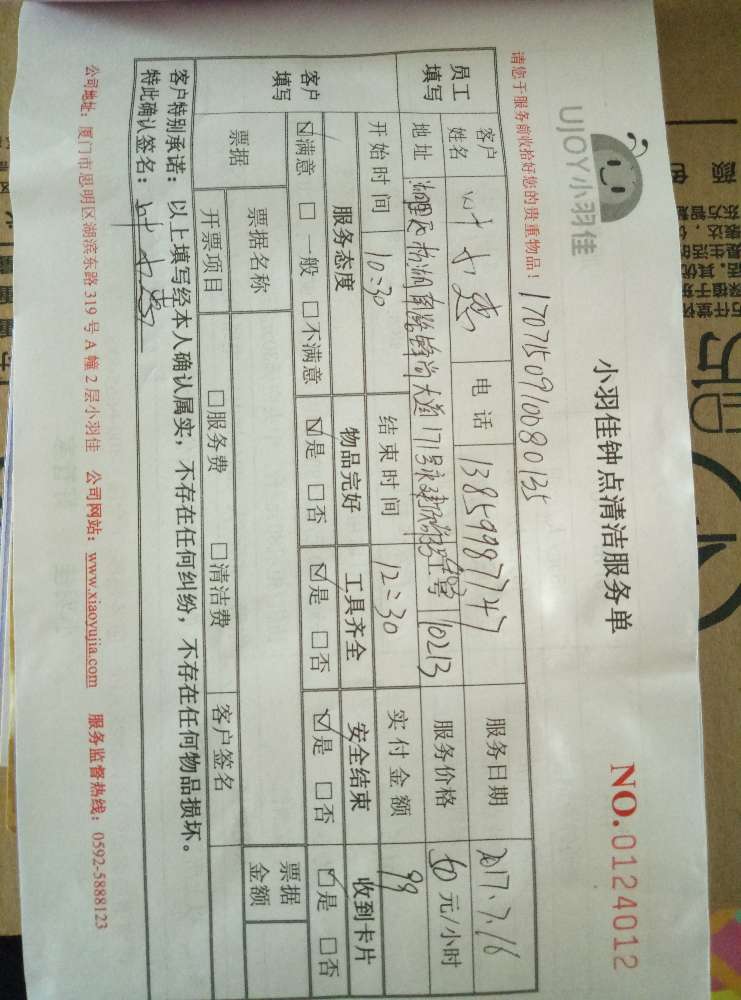 UJOY小羽佳
小羽佳钟点清洁服务单
NO.0124012
请您于服务前收拾好您的贵重物品!
1707150910080135
员工填写
客户姓名
电话 13859987747
服务日期 2017.7.16
地址
工号 10213
服务价格 50 元/小时
开始时间 10:30
结束时间 12:30
实付金额 99
客户填写
服务态度 物品完好 工具齐全 安全结束 收到卡片
☑满意 □一般 □不满意 ☑是 □否 ☑是 □否 ☑是 □否 ☑是 □否
票据
票据名称
票据金额
开票项目 □服务费 □清洁费 客户签名
客户特别承诺:以上填写经本人确认属实,不存在任何纠纷,不存在任何物品损坏。
特此确认签名:
公司地址:厦门市思明区湖滨东路 319 号 A 幢 2 层小羽佳 公司网站:www.xiaoyujia.com 服务监督热线:0592-5888123
颜色